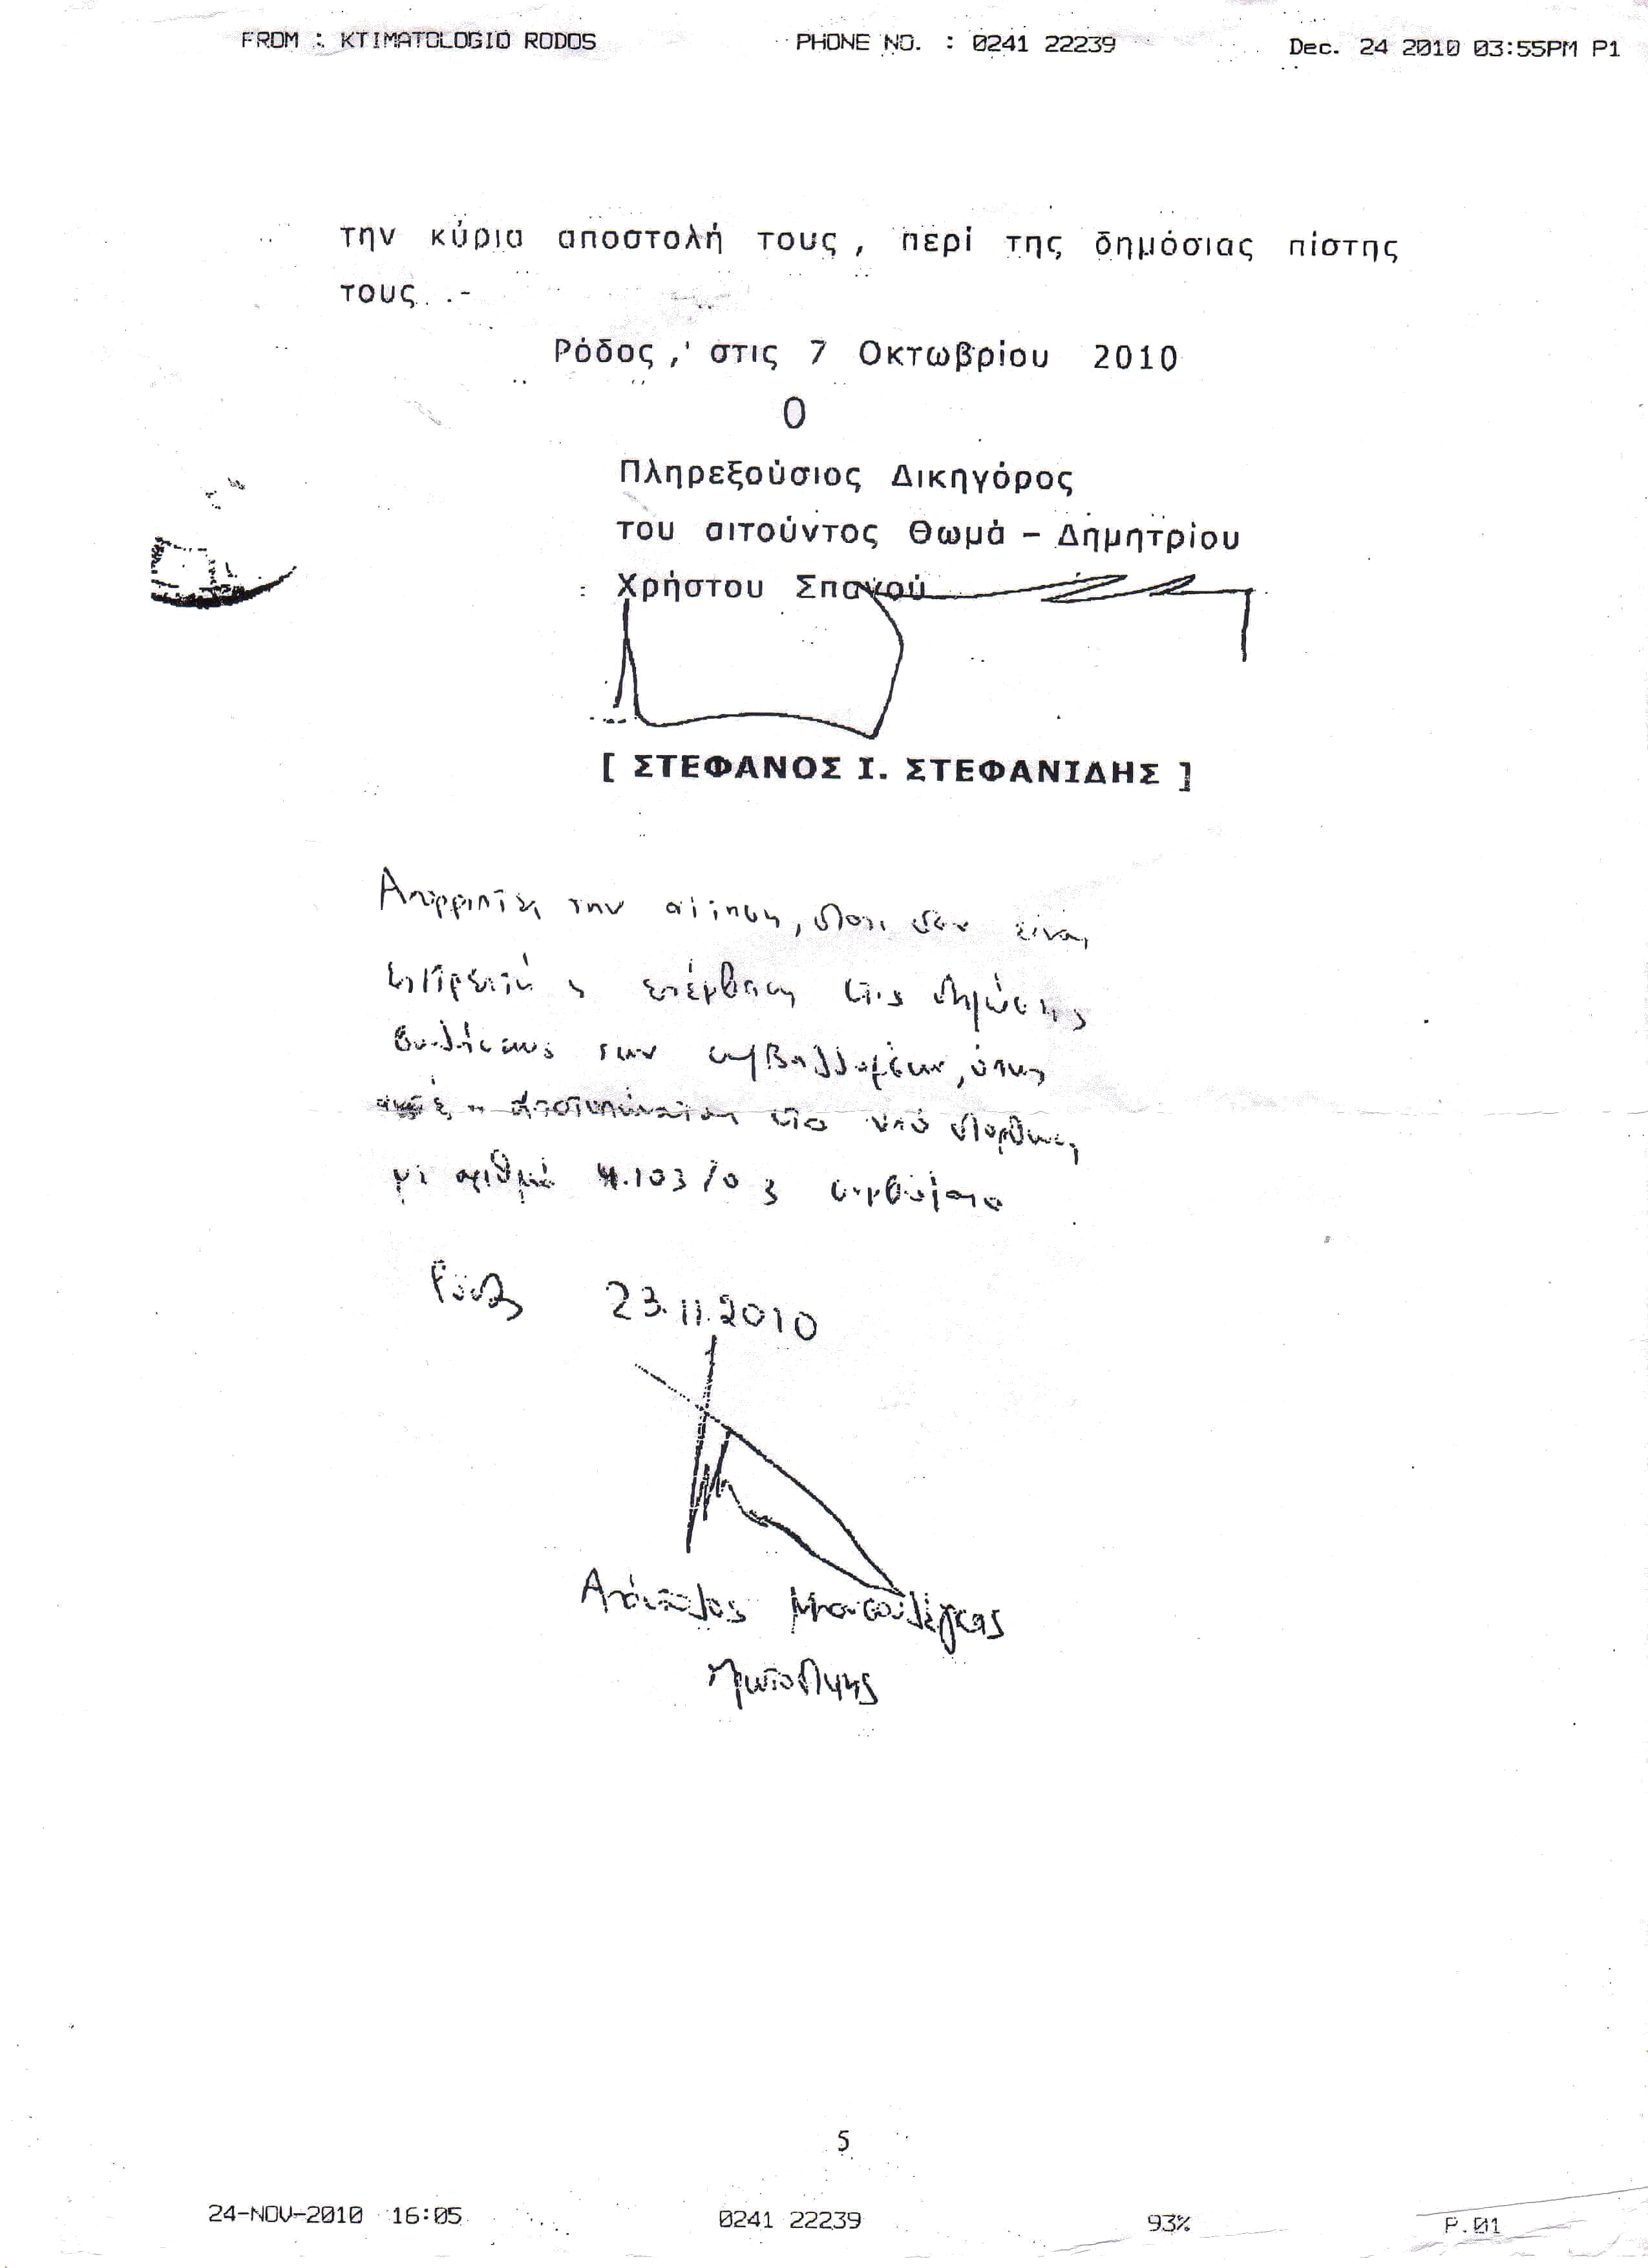 FROM : KTIMATOLOGIO RODOS PHONE NO. : 0241 22239 Dec. 24 2010 03:55PM P1
την κύρια αποστολή τους , περί της δημόσιας πίστης
τους . .-
Ρόδος , στις 7 Οκτωβρίου 2010
Ο
Πληρεξούσιος Δικηγόρος
του αιτούντος Θωμά – Δημητρίου
Χρήστου Σπανού
[ ΣΤΕΦΑΝΟΣ Ι. ΣΤΕΦΑΝΙΔΗΣ ]
Απορρίπτει την αίτηση, διότι δεν είναι
επιτρεπτή η επέμβαση στις δηλώσεις
βουλήσεως των συμβαλλομένων, όπως
αυτές αποτυπώνονται στο υπό διόρθωση
με αριθμό 4.103/03 συμβόλαιο
Ρόδος 23.11.2010
Απόστολος
Πρωτοδίκης
5
24-NOV-2010 16:05 0241 22239 93% P.01